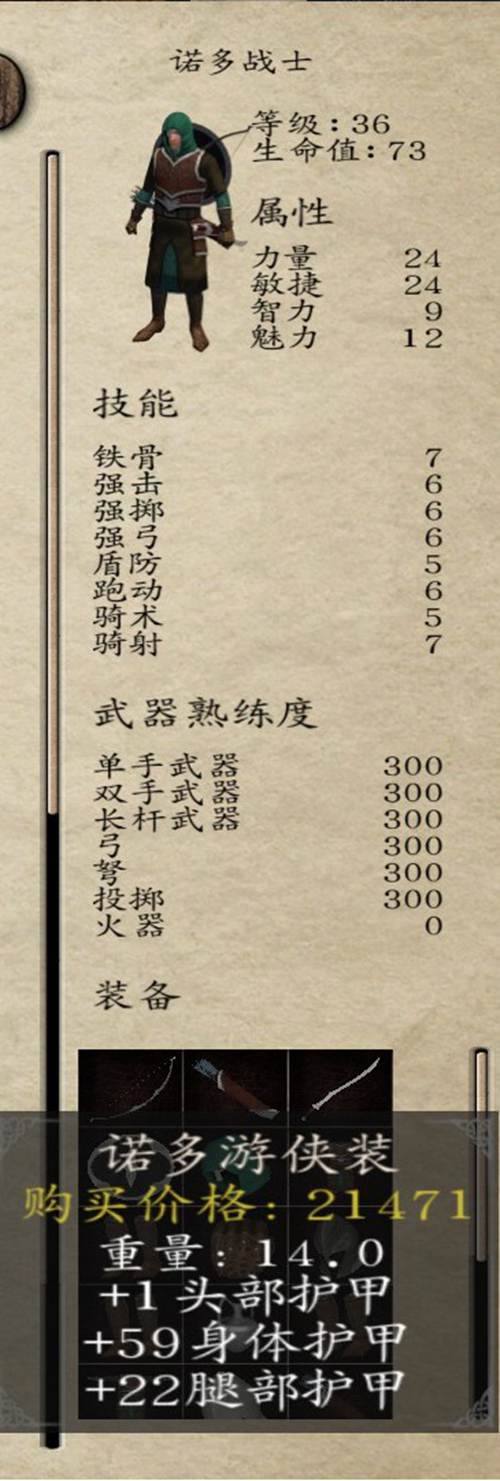 诺多战士
等级:36
生命值:73
属性
力量 24
敏捷 24
智力 9
魅力 12
技能
铁骨 7
强击 6
强掷 6
强弓 6
盾防 5
跑动 6
骑术 5
骑射 7
武器熟练度
单手武器 300
双手武器 300
长杆武器 300
弓 300
弩 300
投掷 300
火器 0
装备
诺多游侠装
购买价格:21471
重量:14.0
+1头部护甲
+59身体护甲
+22腿部护甲